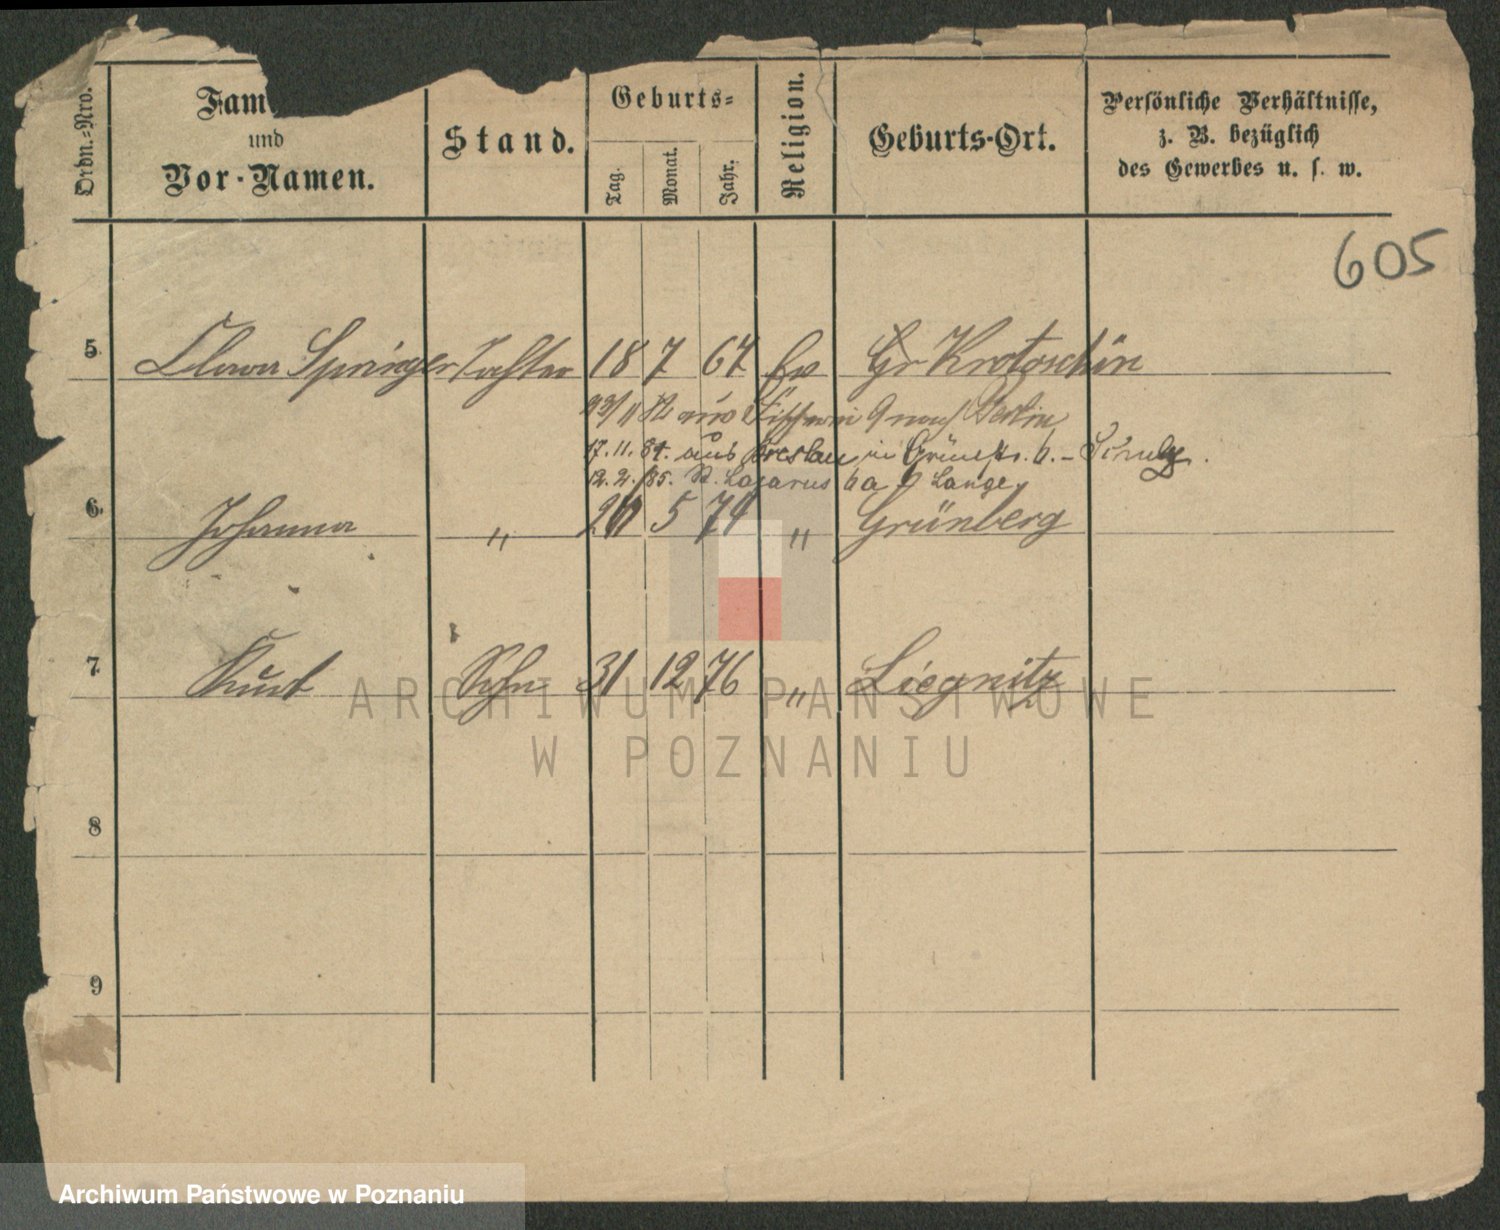 Ordn.-Nro.
Fam
und
Vor-Namen.
Stand.
Geburts-
Tag.
Monat.
Jahr.
Religion.
Geburts-Ort.
Persönliche Verhältnisse,
z. B. bezüglich
des Gewerbes u. s. w.
605
5 Clara Springer Tochter 18 7 67 Ev Gr Krotoschin
23/11 aus Fischerei 9 nach Berlin
17.11.84. aus Breslau in Grünestr. 6. - Schulz.
12.2./85. St. Lazarus 6a Lange
6. Johanna " 5 74 " Grünberg
7 Kurt Sohn 31 12 76 " Liegnitz
8
9
ARCHIWUM PAŃSTWOWE
W POZNANIU
Archiwum Państwowe w Poznaniu